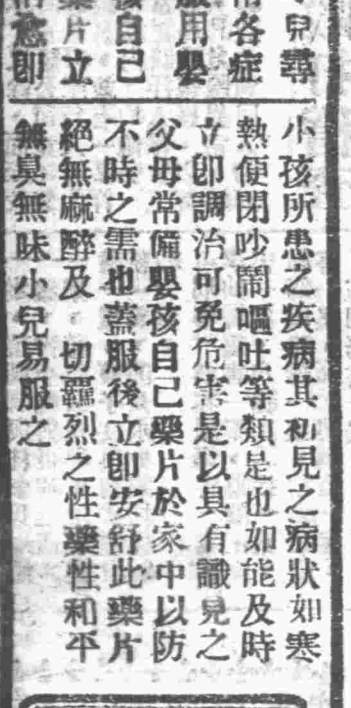 兒尋
各症
用嬰
孩自己
片立
愈即
小孩所患之疾病其初見之病狀如寒
熱便閉吵鬧嘔吐等類是也如能及時
立即調治可免危害是以具有識見之
父母常備嬰孩自己藥片於家中以防
不時之需也蓋服後立即安舒此藥片
絕無麻醉及 切羈烈之性藥性和平
無臭無味小兒易服之